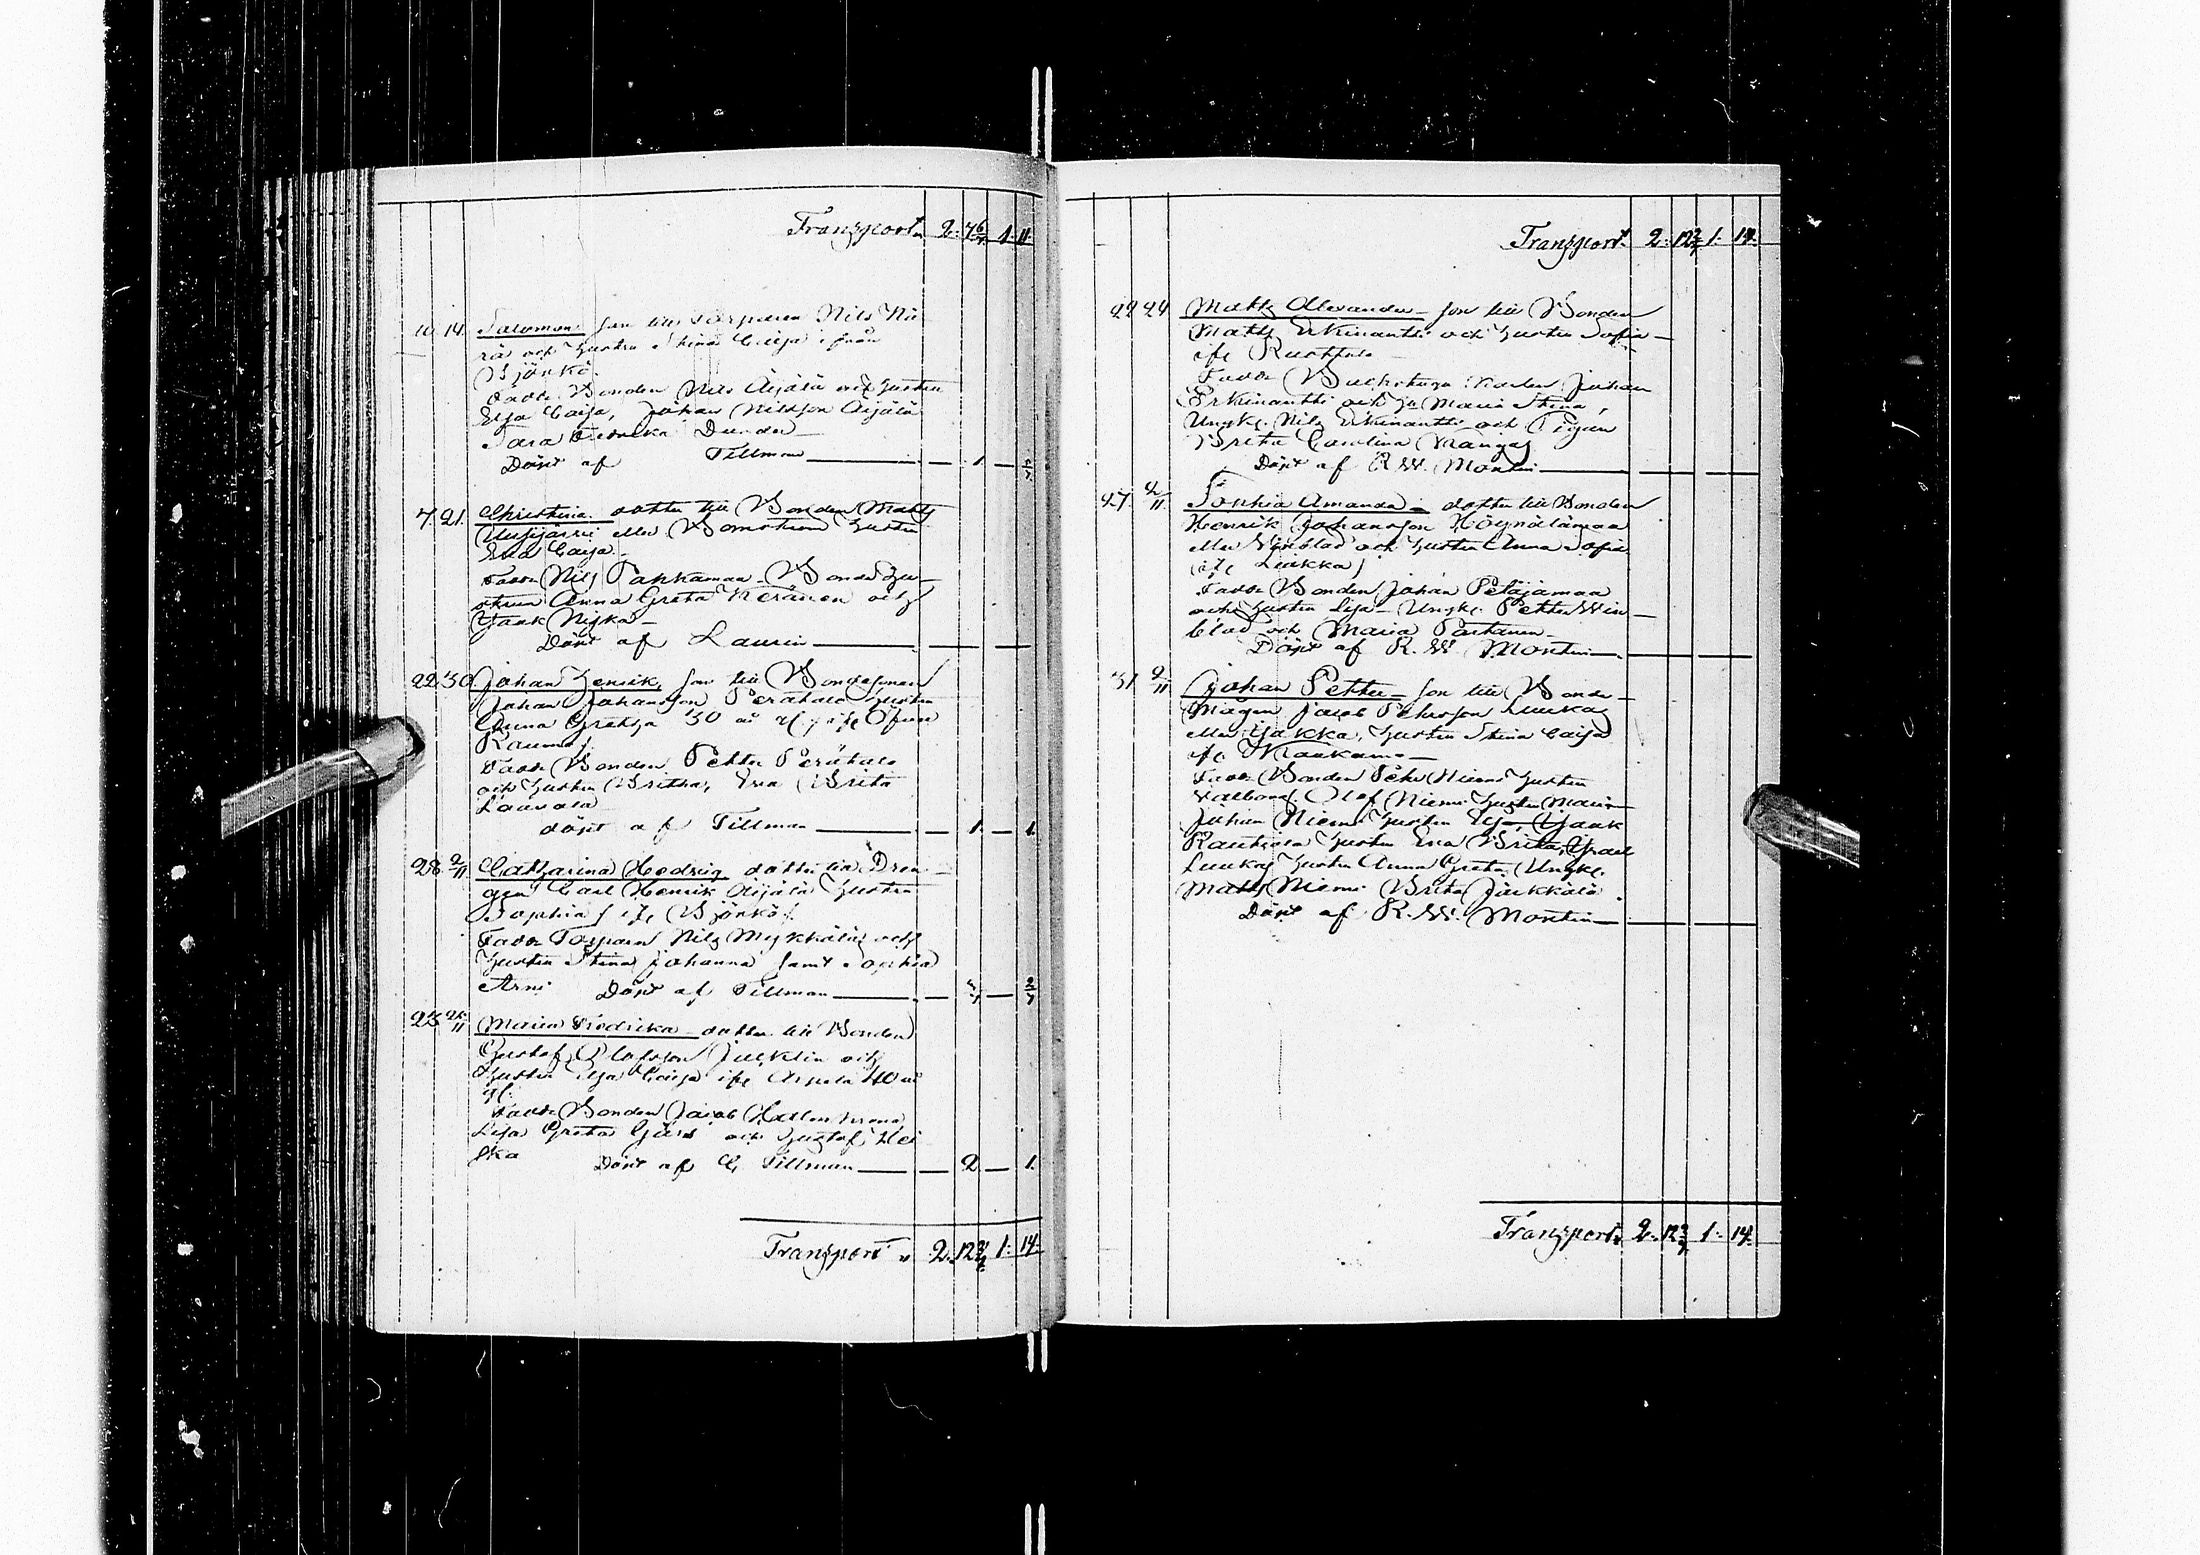 Transport 2. 7 6/7 1. 11.
10. 14. Salomon son till Torparen Nils Nii
rä och Hustru Stina Caisa ifrån
Björkö.
Faddr. Bonden Nils Äijälä och Hustru
Elsa Caisa, Johan Nilsson Äijälä
Sara Fredrika Dunder
Döpt af Tillman — 1. —
7. 21. Christina dotter till Bonden Matts
Uusijärvi eller Hustru
Eva Caisa
Faddr Nils Pakkamaa Bonde Hu
strun Anna Greta Keränen och
Isaak Niska
Döpt af Laurin
22. 30. Johan Henrik, son till Bondesonen
Johan Johansson Perähalo Hustru
Anna Gretha 30 år
Rauma
Faddr Bonden Petter Perähalo
och Hustru Britha, Eva Brita
Lauvola
döpt af Tillman — 1. — 1.
28. 2/11 Catharina Hedvig dotter till Drän
gen Carl Henrik Äijälä Hustru
Sophia ifr Björkö
Faddr Torparen Nils Mykkälä och
Hustru Stina Johanna samt Sophia
Arni Döpt af Tillman
Maria Fredrika dotter till Bonden
Gustaf Olofsson Jucklin och
Hustru Elsa Caisa ifr Arpela 40 år
gl.
Faddr Bonden Jacob
Lisa Greta och Gustaf Hei
ska Döpt af C. Tillman — 2 — 1.
Transport 2. 12 1. 14.
Transport 2. 12 1. 14.
22 24 Matts Alexander son till Bonden
Matts Erkinantti och Hustru Sofia
ifr Ruottala
Faddr Backstugu Karlen Johan
Erkinantti och Hu Maria Stina,
Ungk. Nils Erkinantti och Pigan
Brita Carolina Mangas
Döpt af R. W. Montin
27. 2/11 Sophia Amanda dotter till Bonden
Henrik Johansson Höynälänmaa
eller och Hustru Anna Sofia
ifr Liakka
Faddr Bonden Johan Petäjämaa
och Hustru Lisa Ungk. Petter Win
blad och Maria Partanen
Döpt af R. W. Montin
31 2/11 Johan Petter son till Bonde
Mågen Jacob Pehrsson Luukas
eller Jakka, Hustru Stina Caisa
ifr Kaakama
Faddr Bonden Pehr Niemi Hustru
Walborg Olof Niemi Hustru Maria
Johan Niemi Hustru Isaak
Rautiola Hustru Eva Brita, Israel
Luukas Hustru Anna Greta, Ungk.
Matts Niemi Brita Jäkkälä
Döpt af R. W. Montin
Transport 2. 12 1. 14.